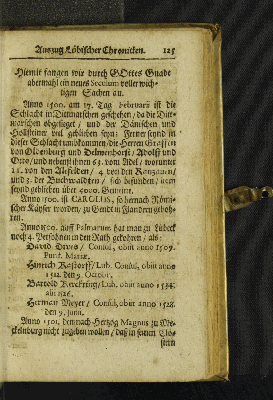 Auszug Lübischer Chroniken. 125
Hiemit fangen wir durch GOttes Gnade
abermahl ein neues Seculum voller wich-
tigen Sachen an.
Anno 1500. am 17. Tag Februarii ist die
Schlacht in Dittmarschen geschehen / da die Ditt-
marschen obgesieget / und der Dänischen und
Hollsteiner viel geblieben seyn: Ferner seynd in
dieser Schlacht umkommen / die Herren Graffen
von Oldenburg und Delmenhorst / Adolff und
Otto / und nebenst ihnen 63. vom Adel / worunter
11. von den Alefelden / 4. von den Rantzauen /
und 3. der Buchwaldten / sich befunden / dazu
seynd geblieben über 4000. Gemeine.
Anno 1500. ist CAROLUS, so hernach Römi-
scher Käyser worden / zu Gendt in Flandren gebohr-
ren.
Anno 1500. auff Palmarum hat man zu Lübeck
noch 4. Persohnen in den Raht gekohren / als:
David Divis / Consul, obiit anno 1509.
Purif. Mariæ.
Hinrich Kastorff / Lub. Consul, obiit anno
1512. den 9. Octobr.
Bartold Kerckring / Lub. obiit anno 1534.
alii 1526.
Herman Meyer / Consul, obiit anno 1528.
den 9. Junii.
Anno 1501. dennoch Hertzog Magnus zu Me-
ckelnburg nicht zugeben wollen / daß in seinen Clö-
stern